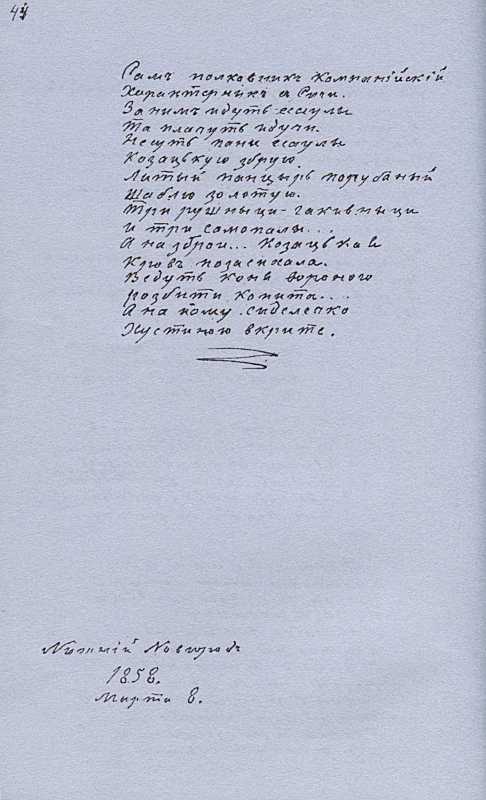 44
Самъ полковникъ Компанійскій
Характерникъ з Сичи.
За нимъ идуть ессаулы
Та плачуть идучи.
Несуть паны ессаулы
Козацькую збрую
Литый панцырь порубаный
Шаблю золотую.
Три рушныци-гакивныци
И три самопалы...
А на зброи... Козацькая
Кровъ позасихала.
Ведуть коня вороного
розбити копита...
А на йому сиделечко
Хустиною вкрите.
Нижній Новгородъ
1858.
Марта 8.